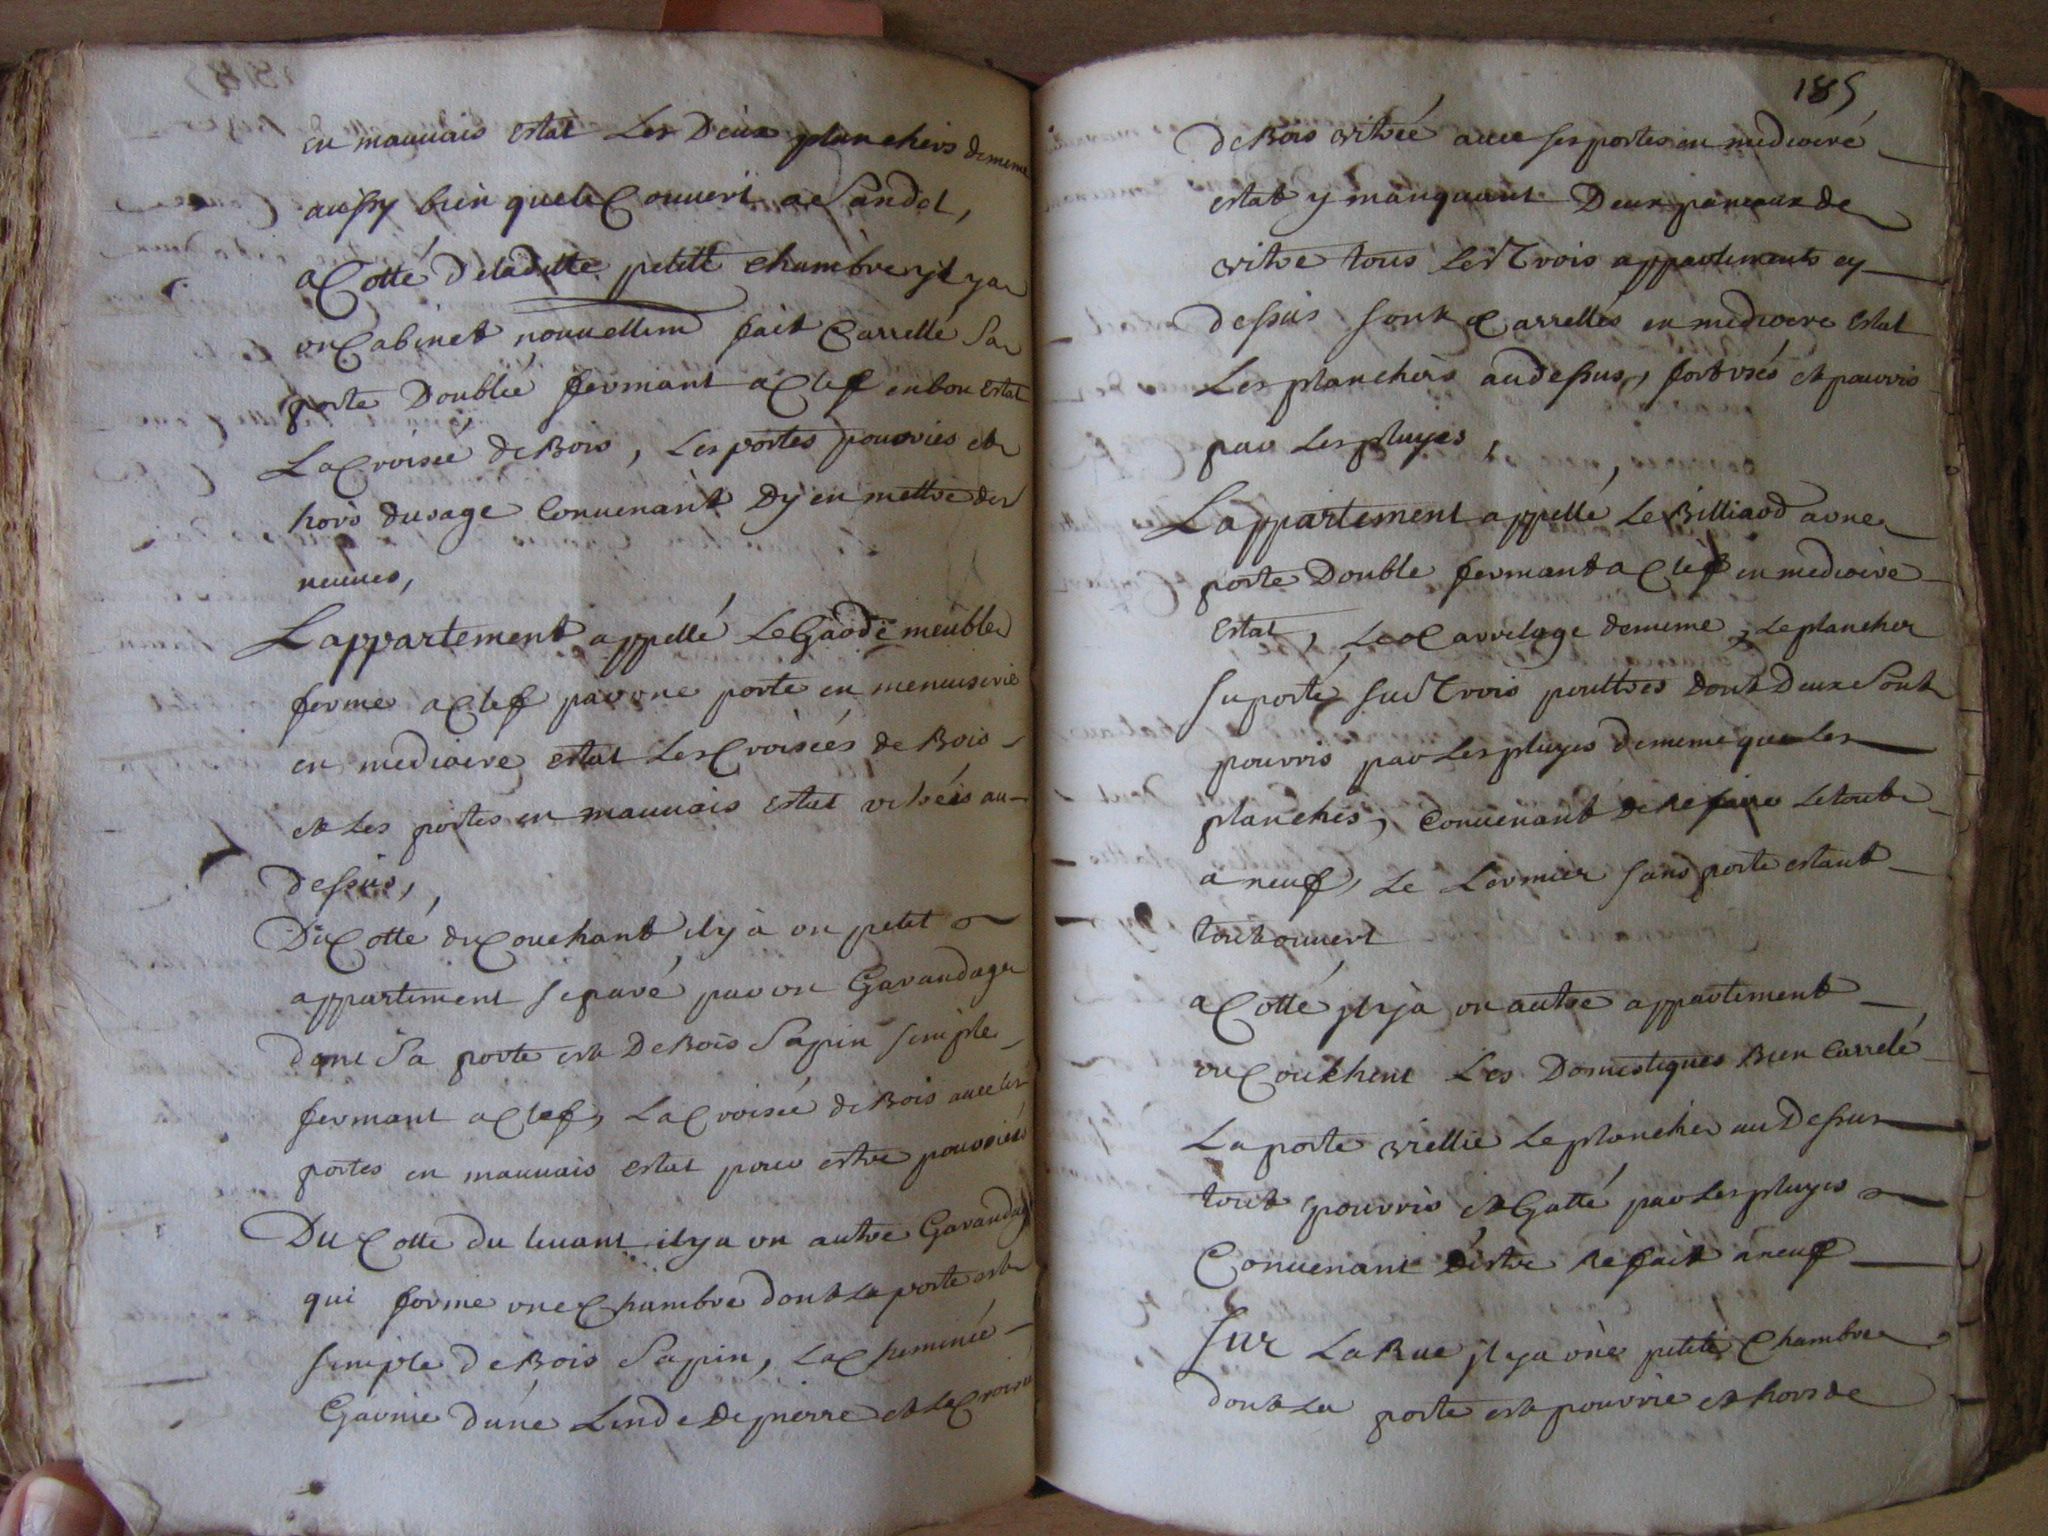 en mauuais estat Les Deux planchers de meme
aussy bien que le Couuert a
a Cotté de ladette petitte chambre yl y a
un Cabinet nouuellem fait Carrellé Sa
porte Doublée fermant a Clef en bon Estat
La Croisée de Bois, Les portes pourries et
hors dusage Conuenant Dy en mettre des
neuues,
Lappartement appellé Le Gàrde meubles
ferme a Clef par une porte en menuiserie
en mediocre estat Les Croisées de Bois
et Les portes en mauuais Estat vitrées au
dessus,
Du Cotté du Couchant il y à un petit
appartement separé par un Garandage
dont Sa porte est De Bois Sapin simple
fermant a Clef, La Croisée de Bois auec les
portes en mauuais estat pour estre pourriés
Du Cotte du leuant il y a un autre Garandage
qui forme une Chambre dont La porte est
simple de Bois Sapin, La Cheminée
Garnie dúne Linde De pierre et La Croisée
185
de Bois vitrée auec ses portes en mediocre
estat y manquant Deux paneaux de
vitre tous Les Trois appartements cy
dessus sont Carrellés en mediocre Estat
Les planchers au dessus, fort usés et pourris
par Les pluyes,
Lappartement appellé Le Billiard a une
porte Double fermant a Clef en mediocre
Estat, Le Carrelage de meme, Le plancher
suporté sur Trois pouttres dont Deux sont
pourris par Les pluyes de meme que Les
planches, Conuenant de Refaire Le tout
a neuf, Le Lermier sans porte estant
tout ouuert
a Cotté yl y à un autre appartement
ou Couchent Les Domestiques Bien Carrelé
La porte viellie Le plancher au Dessus
tout pourris et Gatté par Les pluyes
Conuenant dèstre Refait à neuf
Sur La Rue yl y a une petite Chambre
dont La porte est pourrie et hors de